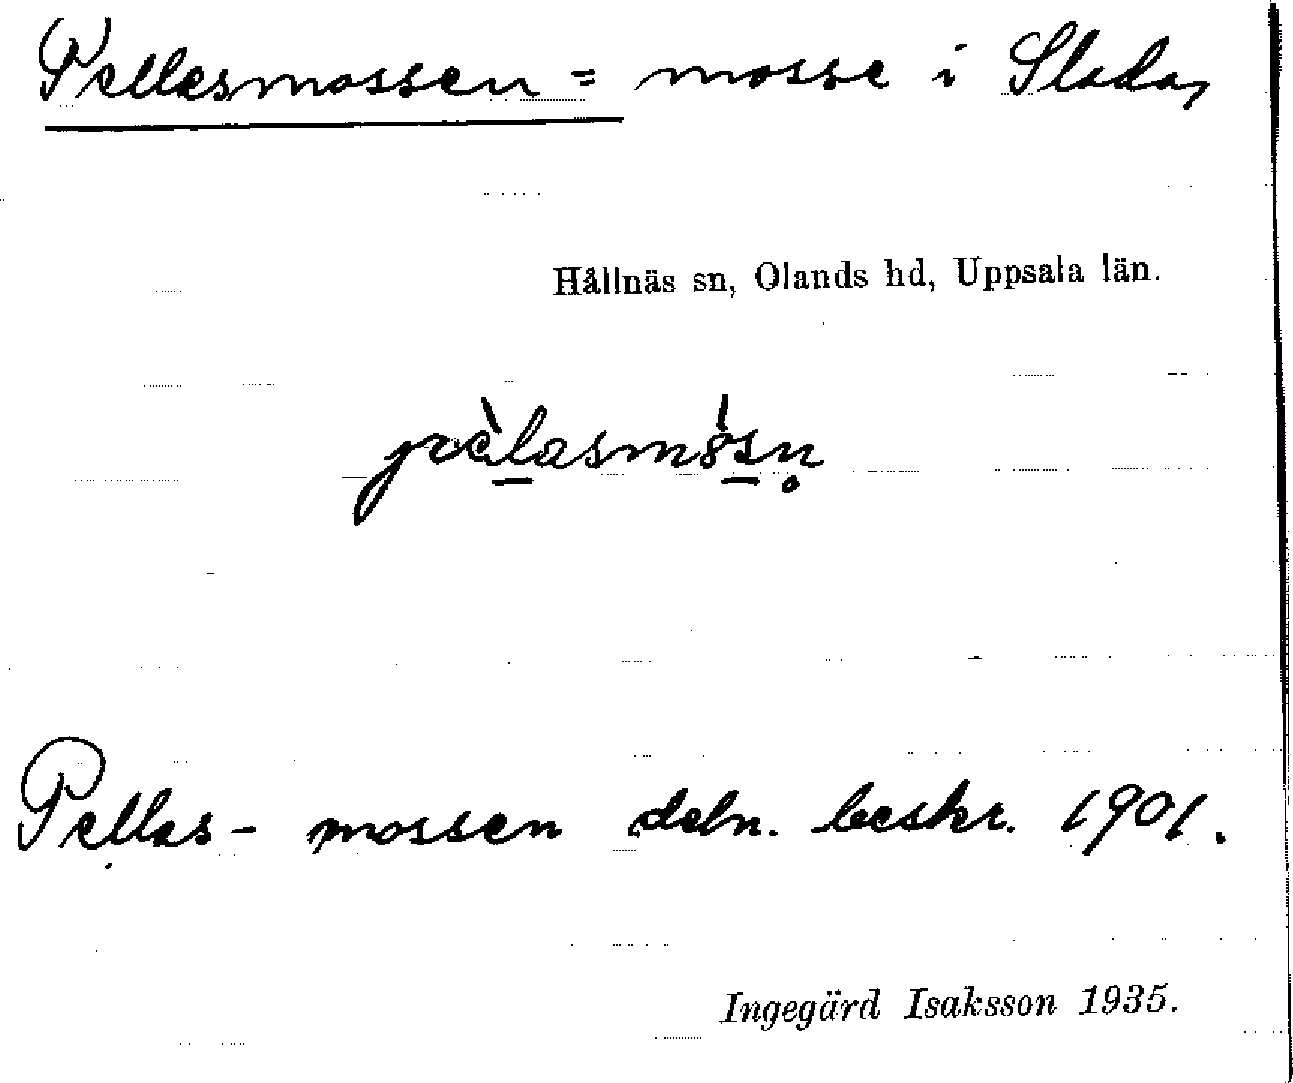 Pellasmossen = mosse i Slada,
Hållnäs sn, Olands hd, Uppsala län.
Pellas - mossen deln. beskr. 1901.
Ingegärd Isaksson 1935.